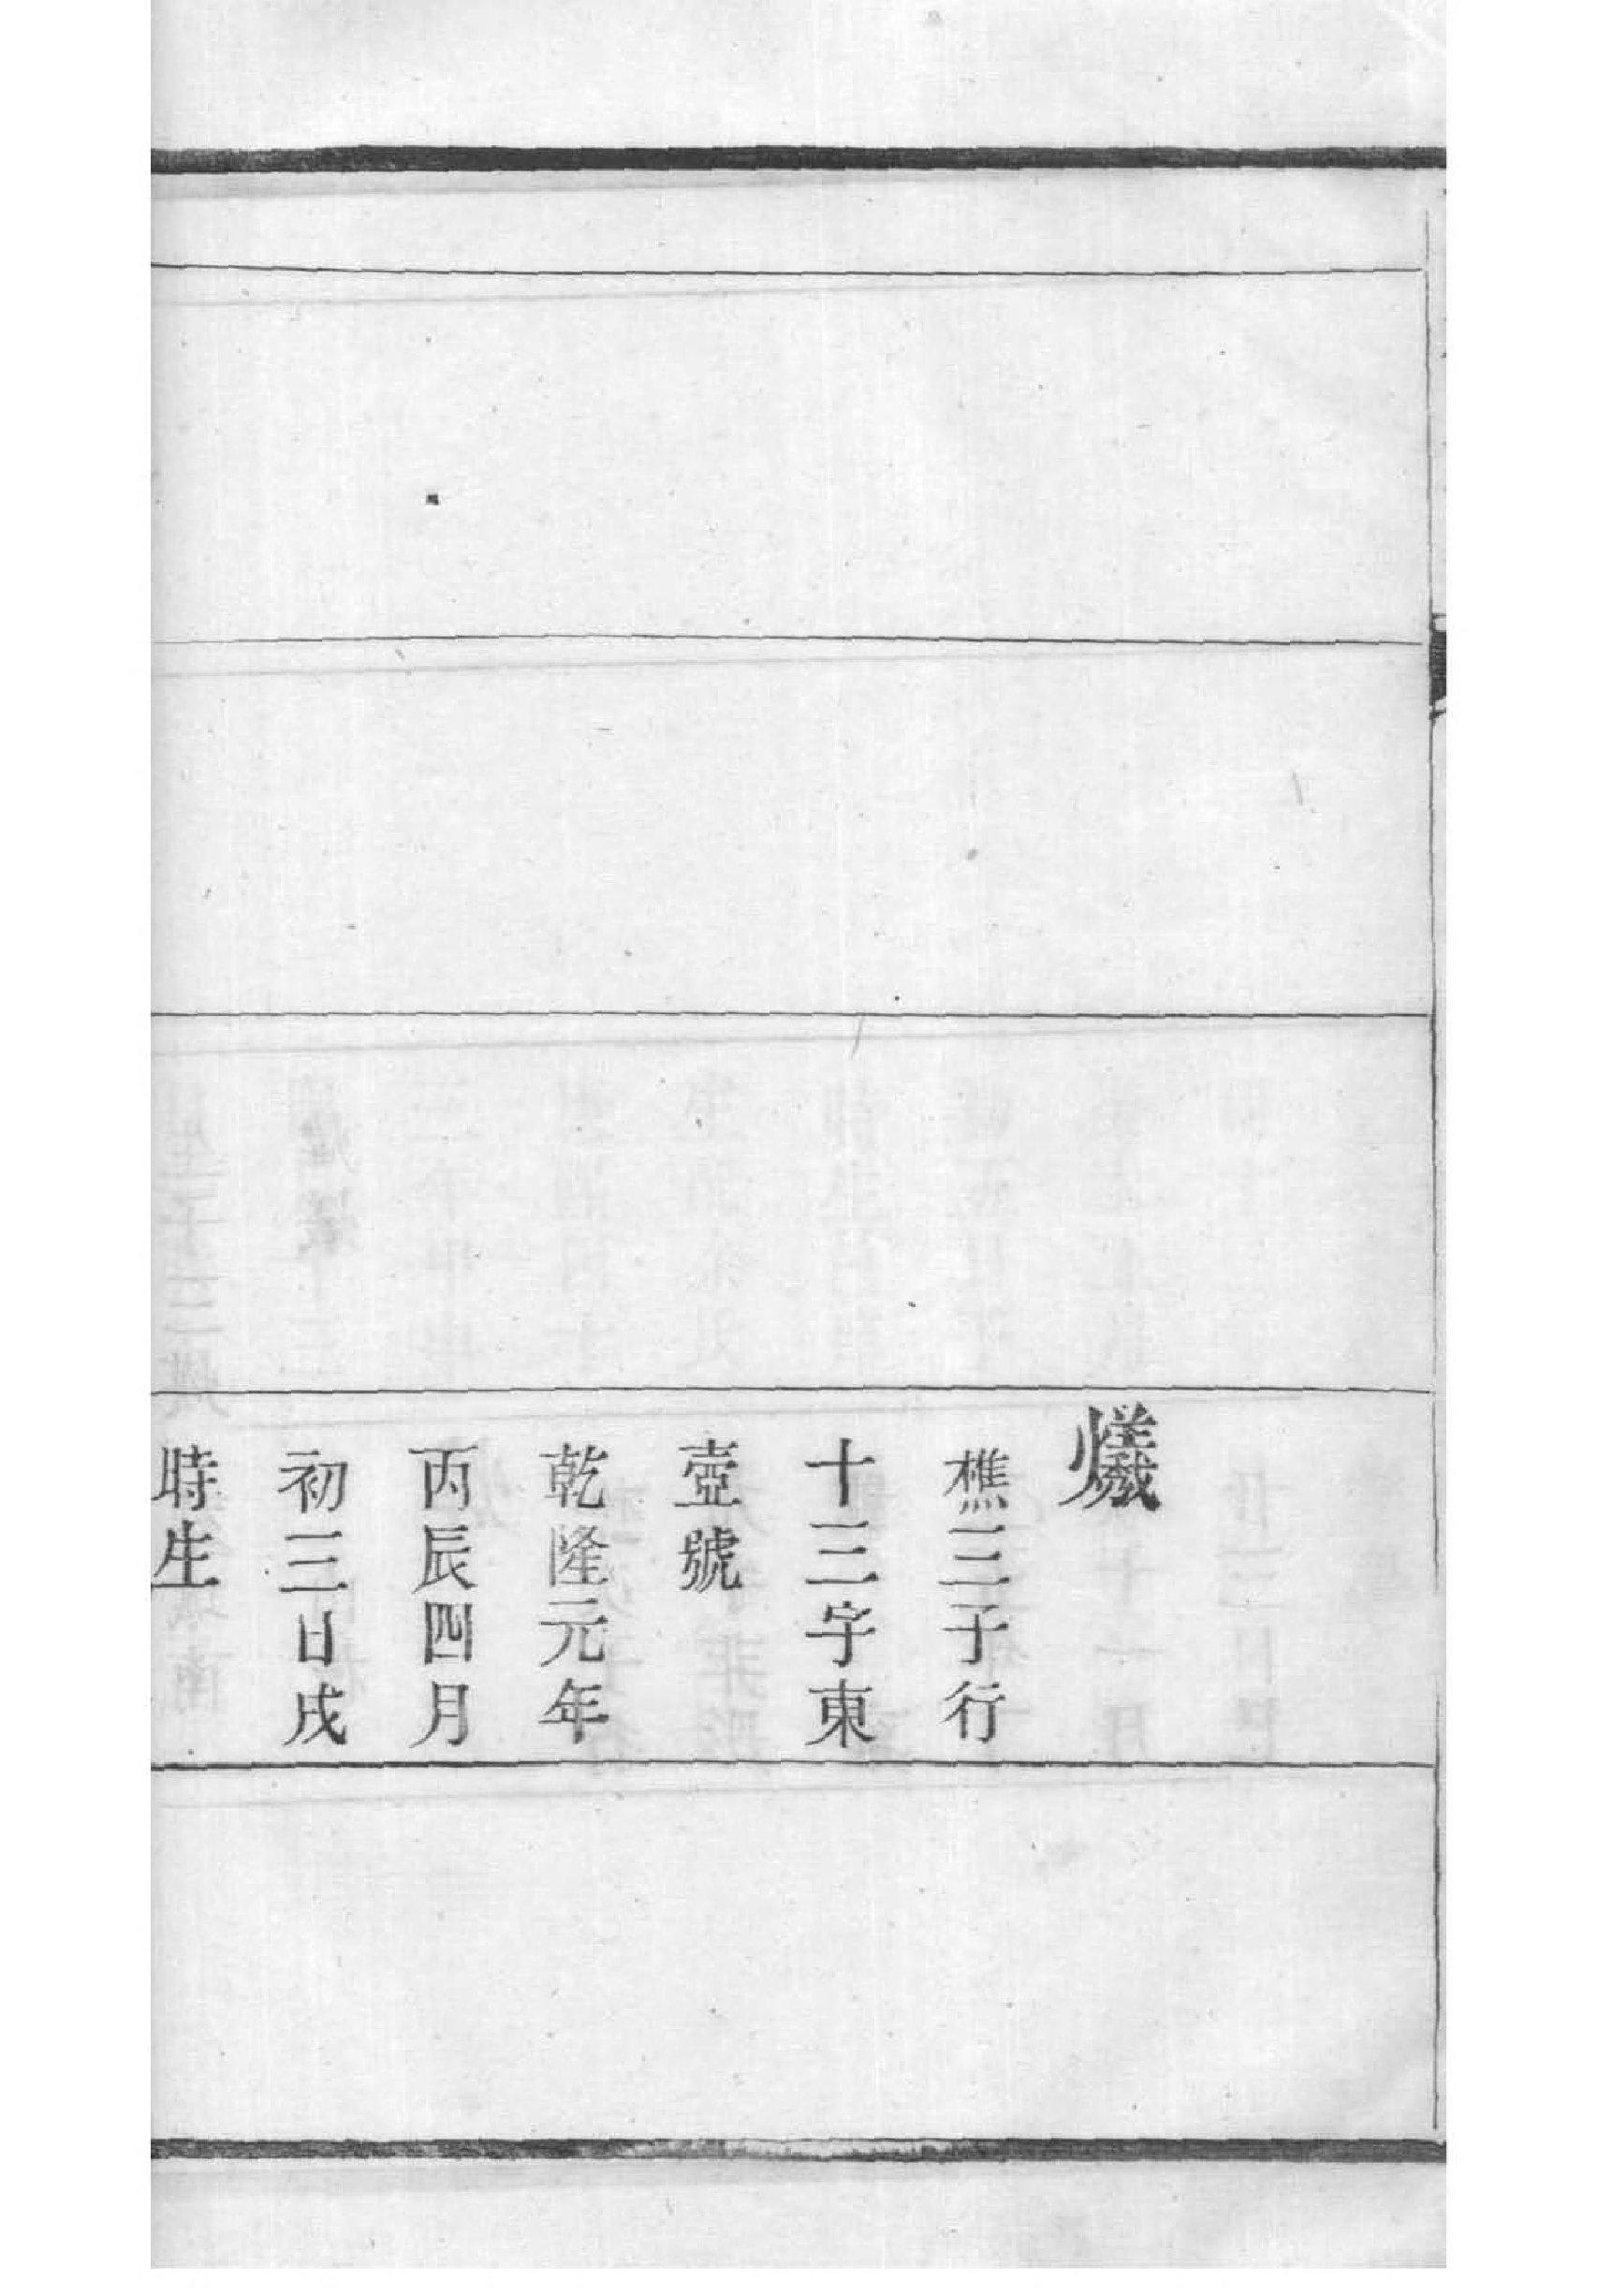 爔
樵三子行
十三字東
壺號
乾隆元年
丙辰四月
初三日戌
時生